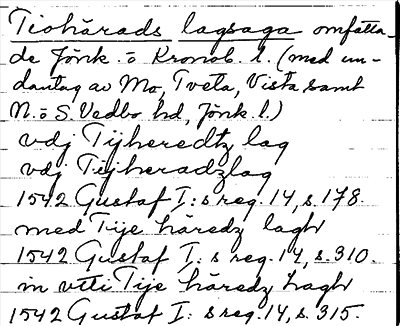 Tiohärads lagsaga omfatta-
de Jönk. o Kronob. l. (med un-
dantag av Mo, Tveta, Vista samt
N. o S. Vedbo hd, Jönk. l.)
vdj Tijheredtz lag
vdj Teijheradzlag
1542 Gustaf I: s reg. 14, s. 178.
med Tije häredz lagh
1542 Gustaf I: s reg. 14, s. 310.
in vtti Tije häredz Lagh
1542 Gustaf I: s reg. 14, s. 315.